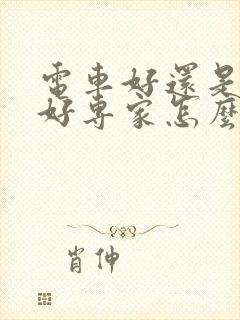 電車好還是
好專家怎麼
肖伸